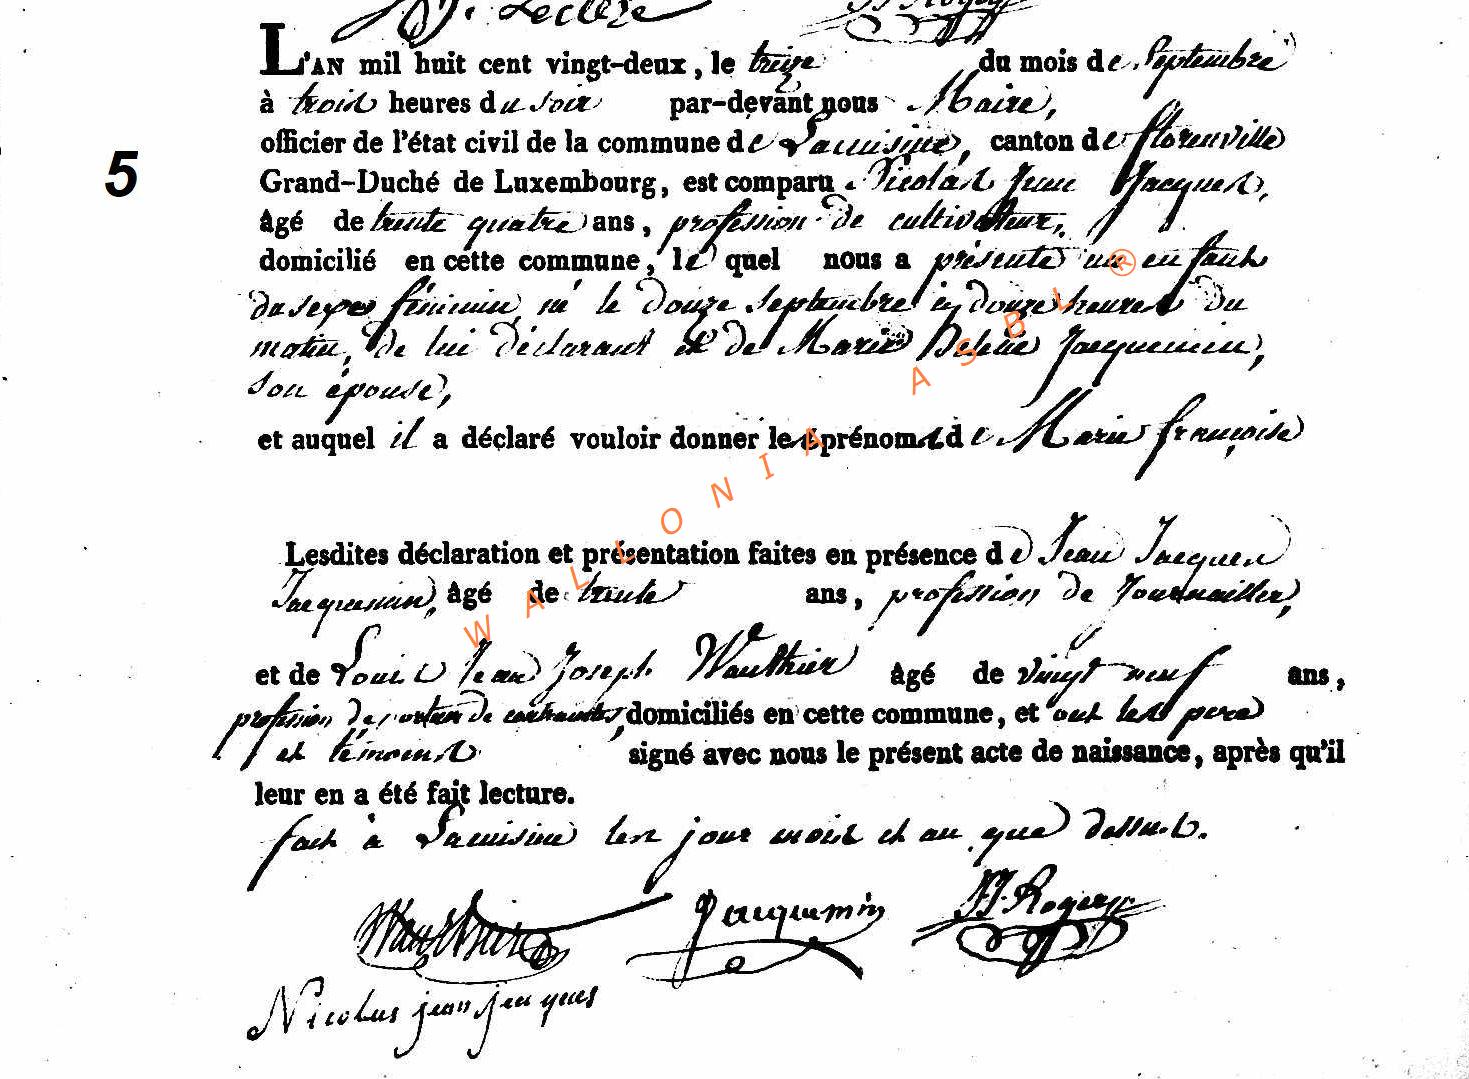 J. Leclère
L'AN mil huit cent vingt-deux, le treize du mois de Septembre
à trois heures du soir par-devant nous Maire,
officier de l'état civil de la commune de Lacuisine, canton de florenville
Grand-Duché de Luxembourg, est comparu Nicolas Jean Jacques,
âgé de trente quatre ans, profession de cultivateur,
domicilié en cette commune, le quel nous a présenté un enfant
du sexe féminin né le douze Septembre à douze heures du
matin, de lui déclarant et de Marie Jacquemin,
son épouse,
et auquel il a déclaré vouloir donner les prénoms de Marie françoise
Lesdites déclaration et présentation faites en présence de Jean Jacques
Jacquemin, âgé de trente ans, profession de Journailler,
et de Louis Jean Joseph Wauthier âgé de vingt neuf ans,
profession de porteur de contraintes, domiciliés en cette commune, et ont les pere
et témoins signé avec nous le présent acte de naissance, après qu'il
leur en a été fait lecture.
fait à Lacuisine les jour mois et an que dessus.
Wauthier Jacquemin Rogery
Nicolas jean jacques
5
WALLONIA ASBL ®